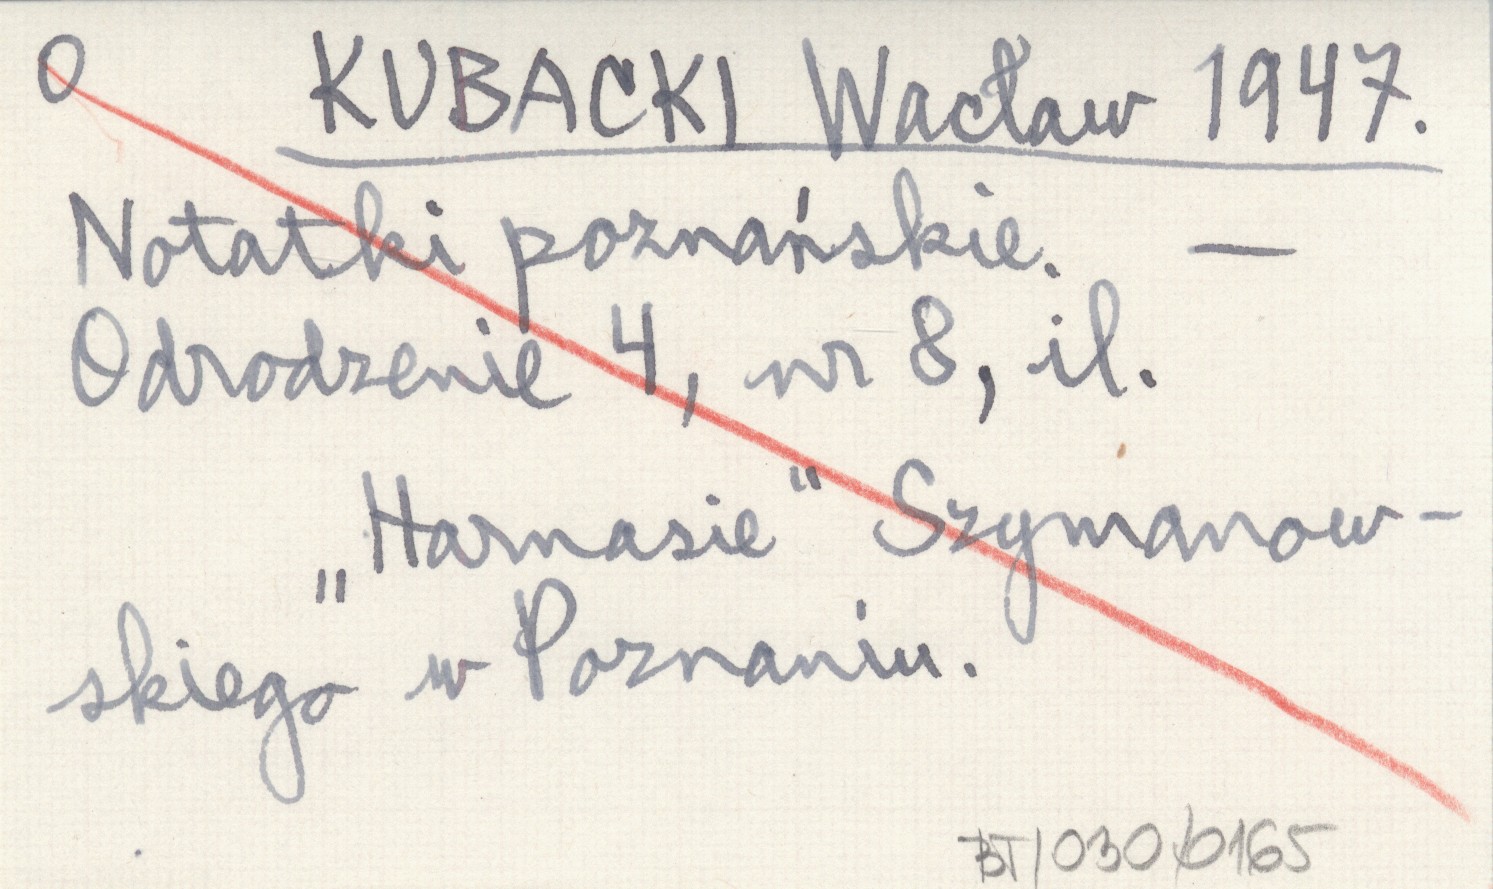 O KUBACKI Wacław 1947.
Notatki poznańskie. —
Odrodzenie 4, nr 8, il.
„Harnasie" Szymanow-
skiego w Poznaniu.
BT/030/0165